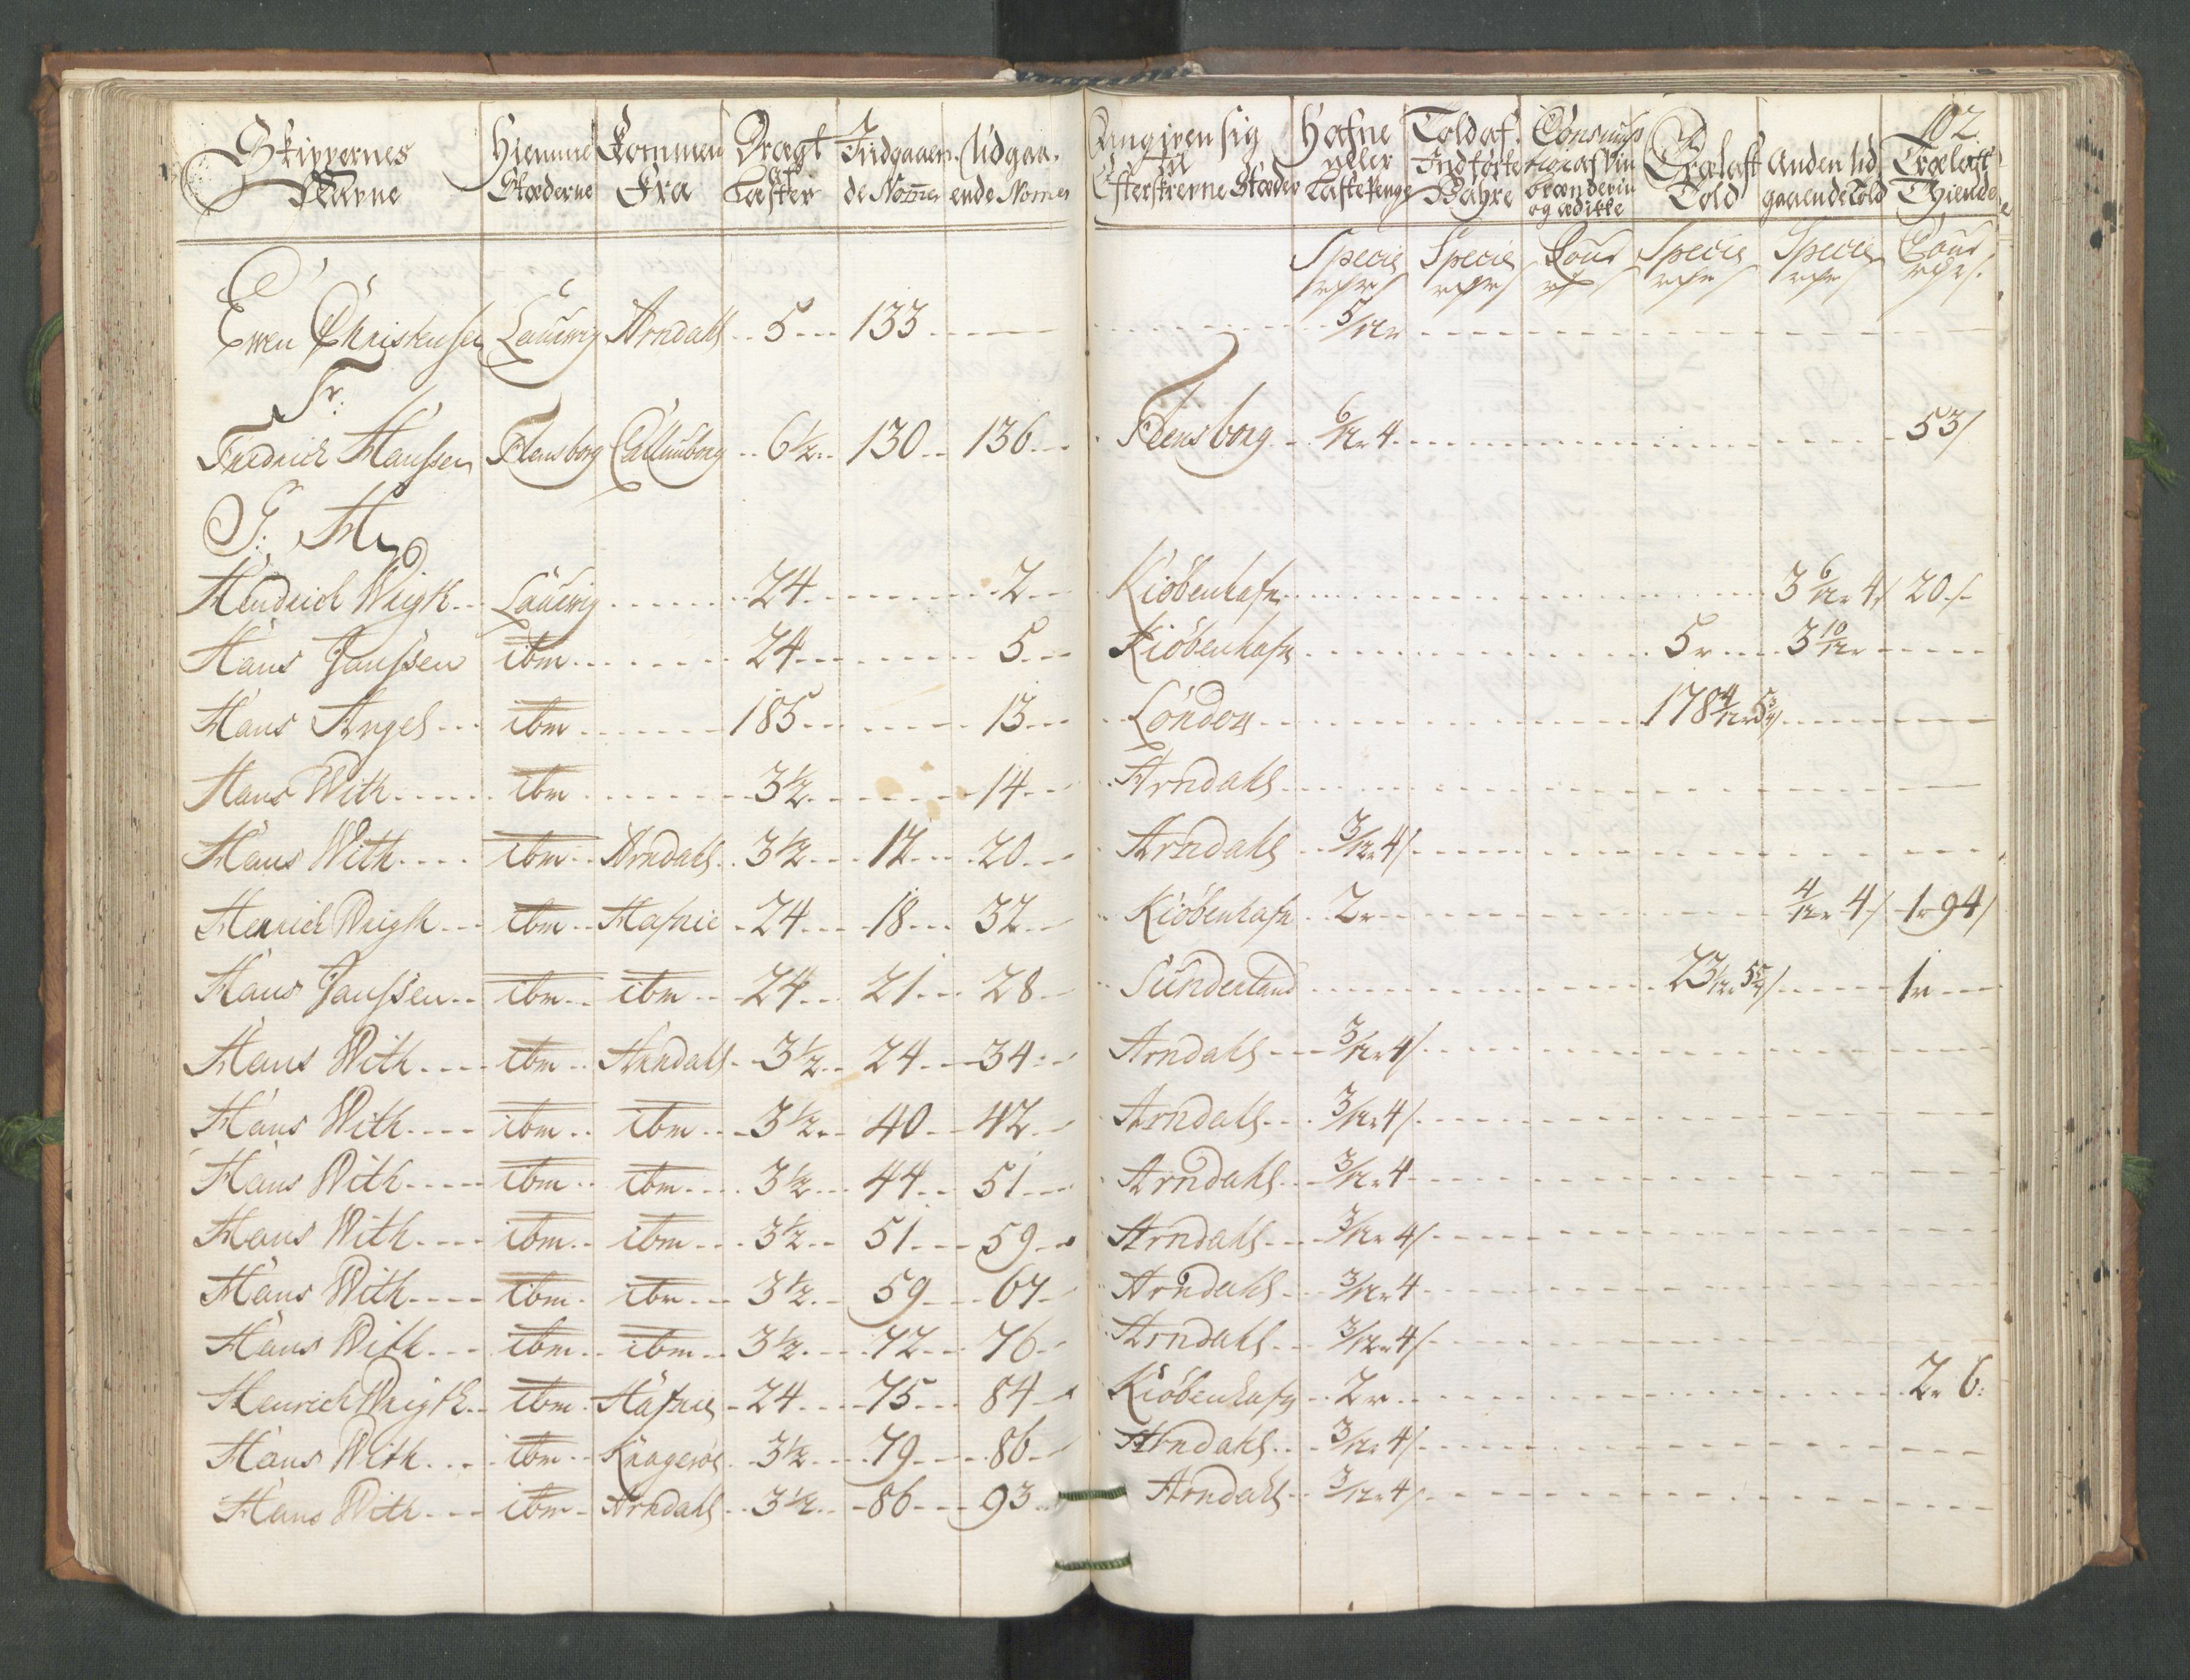 102
Skippernes Nafne | Hiemme Stæderne | Kommen Fra | Dragt Læster | Indgaaen- de Nomer | Udgaa- ende Nomer | Angiven sig til Efterskrevne Stæder | Hafne eller Lastepenge | Told af Indførte Wahre | Consumption af Viin brændeviin og ædikke | Trælast Told | Anden Ud gaaende Told | Trælast Tiende
Specie | Specie | Cour | Specie | Specie | Cour
E
Ewen Christensen | Laurwig | Arndahl | 5 | 133 | 5/12 r
Fr:
Fredrich Hanssen | Flensborg | Callunborg | 6½ | 130 | 136 | Flensborg | 6/12 r 4 | 53/
G: H
Hendrich Weigh | Laurwig | 24 | 2 | Kiøbenhafn | 3 6/12 r 4/ | 20/
Hans Janssen | ibm | 24 | 5 | Kiøbenhafn | 5 r | 3 10/12 r
Hans Angel | ibm | 185 | 13 | London | 178 4/12 r 5¾/
Hans With | ibm | 3½ | 14 | Arndahl
Hans With | ibm | Arndahl | 3½ | 12 | 20 | Arndahl | 3/12 r 4/
Henrich Weigh | ibm | Hafnie | 24 | 18 | 32 | Kiøbenhafn | 2 r | 4/12 r 4/ | 1 r 94/
Hans Janssen | ibm | ibm | 24 | 21 | 28 | Sunderland | 1 r
Hans With | ibm | Arndahl | 3½ | 24 | 34 | Arndahl | 3/12 r 4/
Hans With | ibm | ibm | 3½ | 40 | 42 | Arndahl | 3/12 r 4/
Hans With | ibm | ibm | 3½ | 44 | 51 | Arndahl | 3/12 r 4
Hans With | ibm | ibm | 3½ | 51 | 59 | Arndahl | 3/12 r 4/
Hans With | ibm | ibm | 3½ | 59 | 67 | Arndahl | 3/12 r 4
Hans With | ibm | ibm | 3½ | 72 | 76 | Arndahl | 3/12 r 4/
Henrich Weigh | ibm | Hafnie | 24 | 75 | 84 | Kiøbenhafn | 2 r | 2 r 6
Hans With | ibm | Kragerøe | 3½ | 79 | 86 | Arndahl | 3/12 r 4/
Hans With | ibm | Arndahl | 3½ | 86 | 93 | Arndahl | 3/12 r 4/